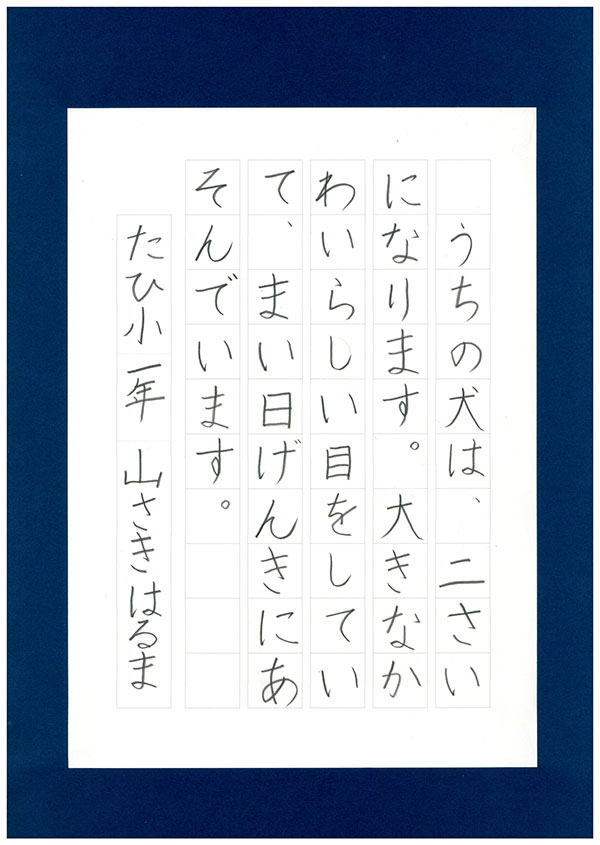 うちの犬は、二さい
になります。大きなか
わいらしい目をしてい
て、まい日げんきにあ
そんでいます。
たひ小一年 山さきはるま